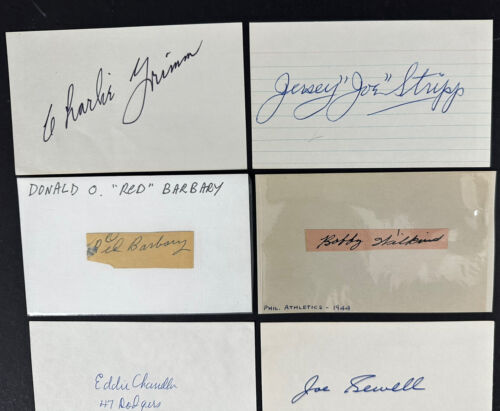 Charlie Grimm
Jersey "Joe" Stripp
DONALD O. "RED" BARBARY
Red Barbary
Bobby Wilkins
PHIL. ATHLETICS - 1944
Eddie Chandler
47 Dodgers
Joe Sewell